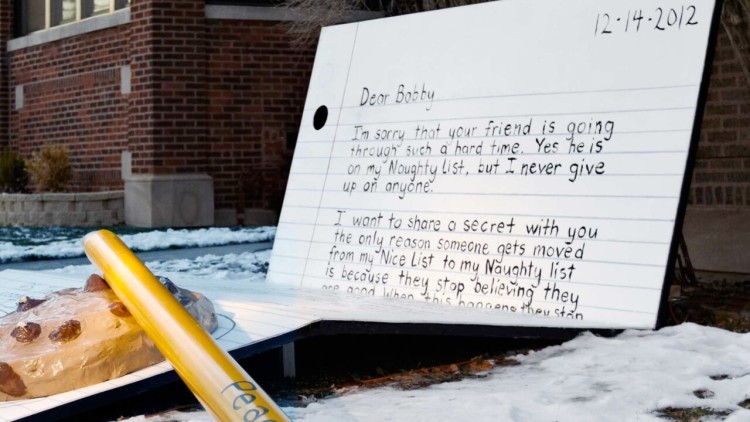 12·14·2012
Dear Bobby
I'm sorry that your friend is going
through such a hard time. Yes he is
on my Noughty List, but I never give
up on anyone.
I want to share a secret with you
the only reason someone gets moved
from my Nice List to my Naughty list
is because they stop believing they
are good When this happens they stop
Peac